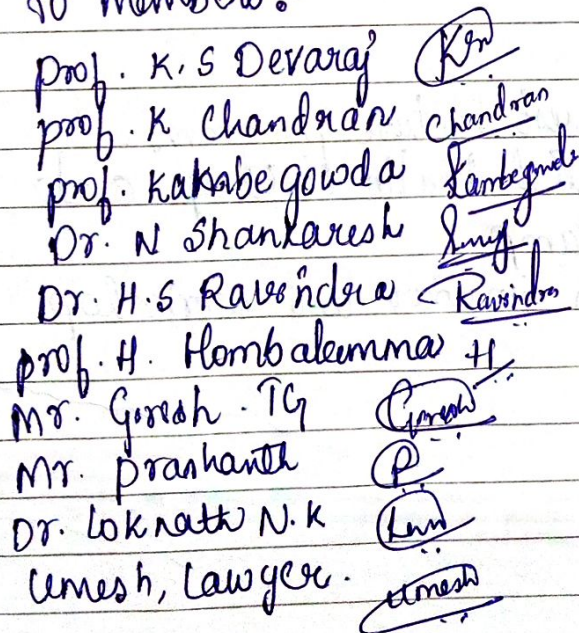 To Members:
Prof. K.S Devaraj
Prof. K Chandran Chandran
Prof. Kakabegowda
Dr. N Shankaresh
Dr. H.S Ravindra Ravindra
Prof. H. Hombalamma H
Mr. Giresh. TG Giresh
Mr. Prashanth P
Dr. Loknath N.K
Umesh, Lawyer. Umesh